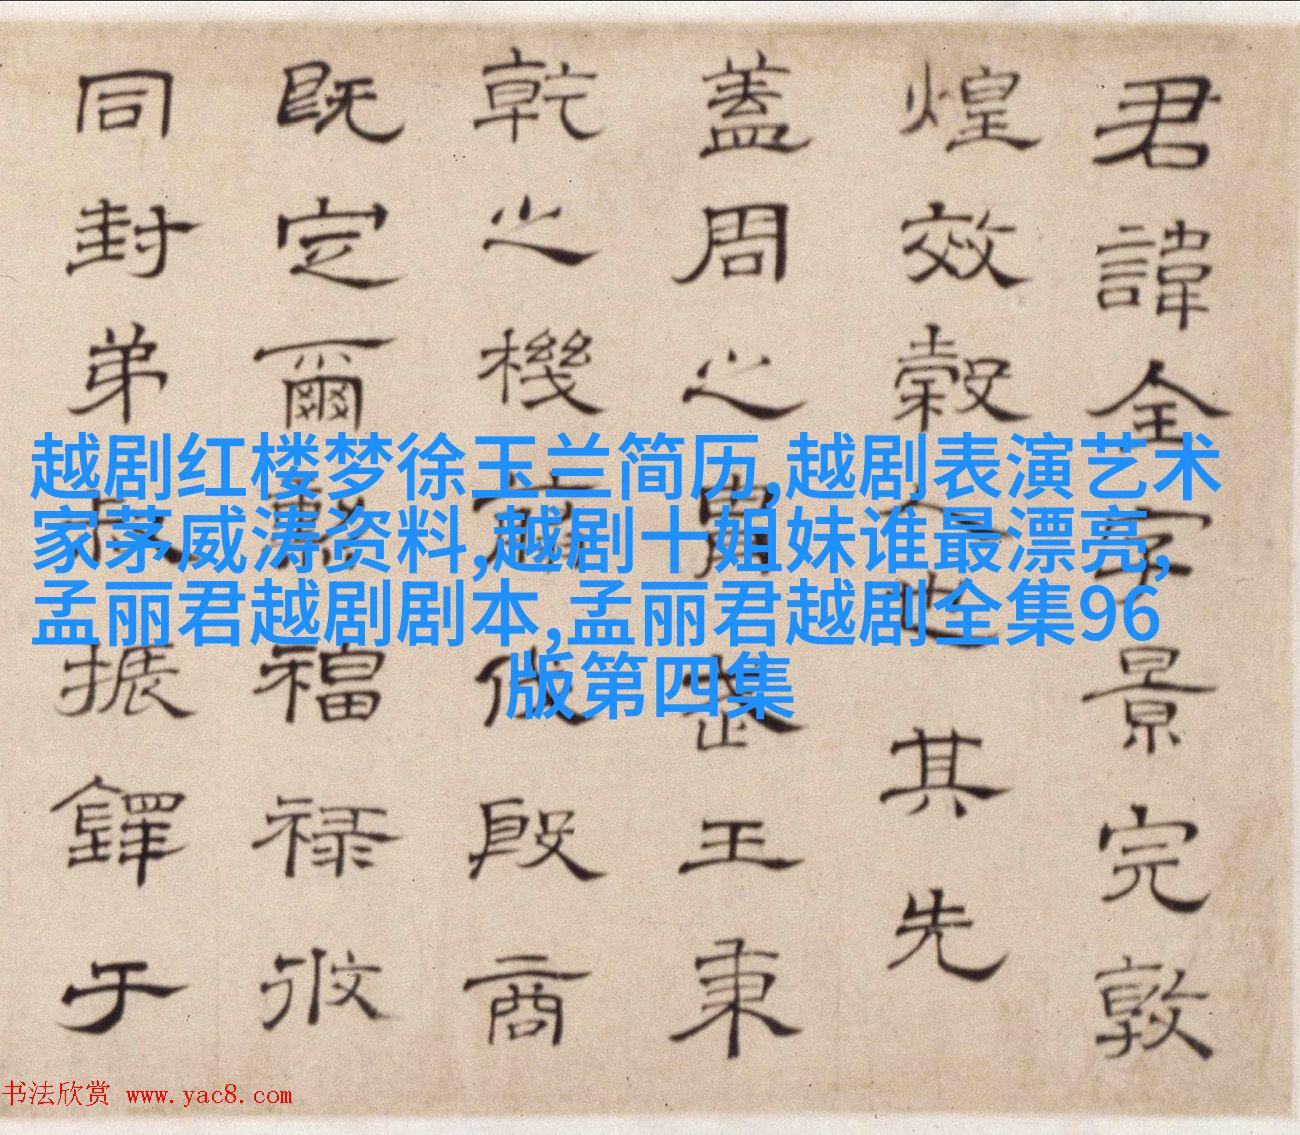 君諱全字景完敦
煌效穀人也其先
蓋周之胄武王秉
乾之機翦伐殷商
既定爾勳福祿攸
同封弟叔振鐸于
越剧红楼梦徐玉兰简历,越剧表演艺术
家茅威涛资料,越剧十姐妹谁最漂亮,
孟丽君越剧剧本,孟丽君越剧全集96
版第四集
书法欣赏 www.yac8.com